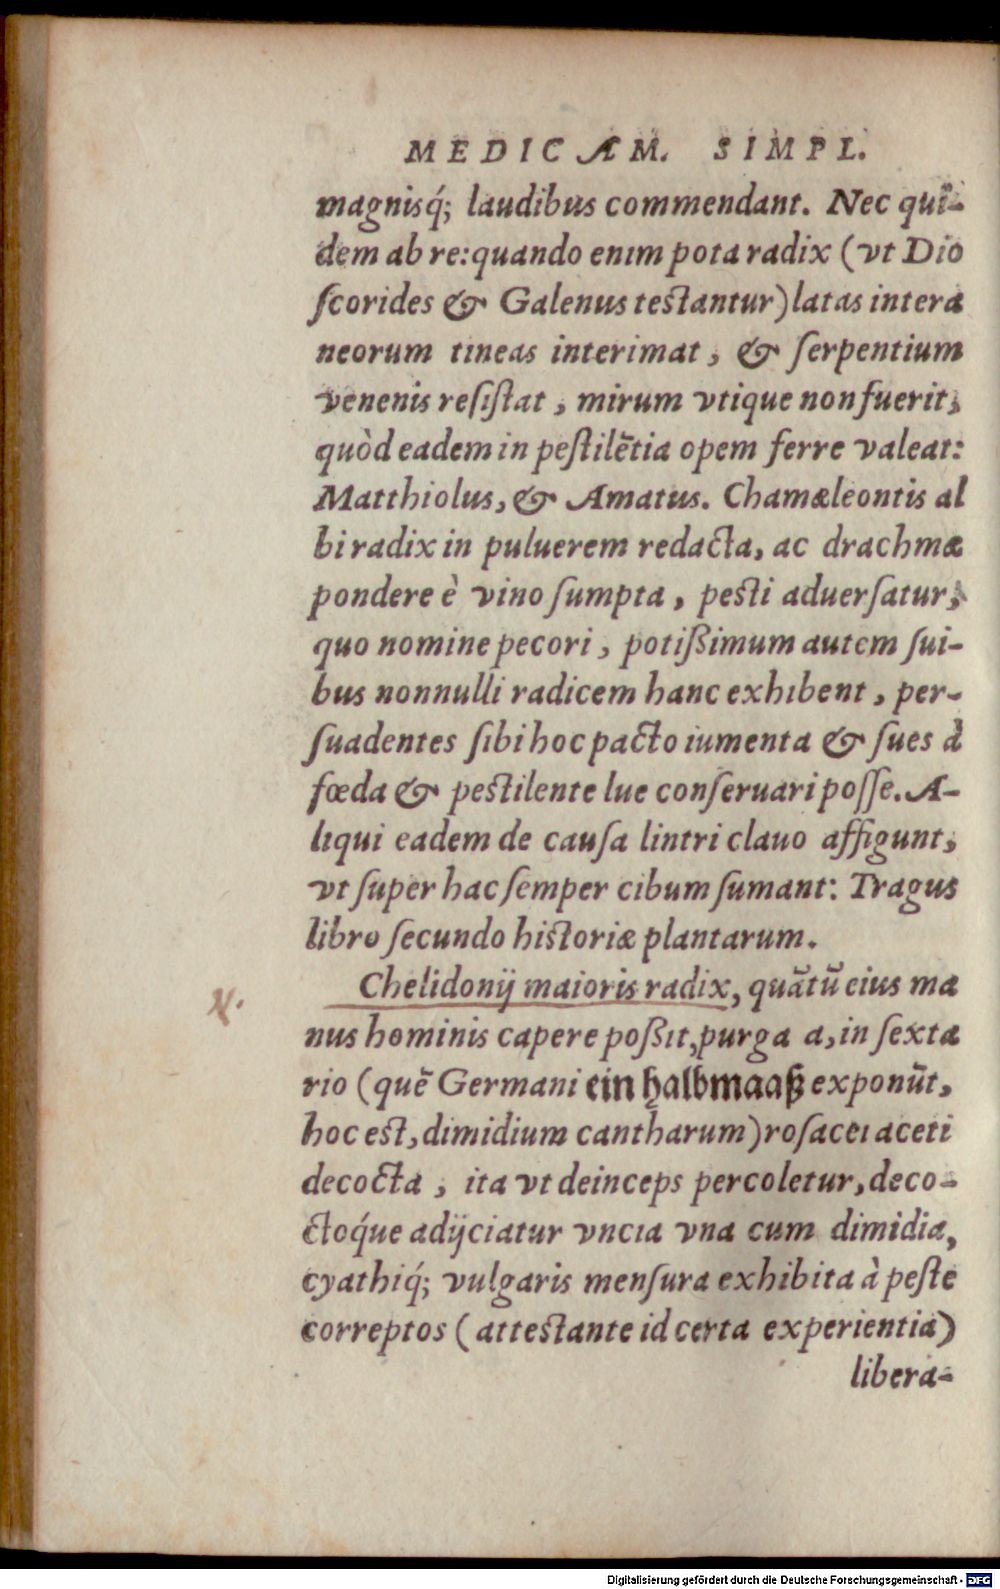 MEDICAM. SIMPL.
magnisq́; laudibus commendant. Nec qui-
dem ab re: quando enim pota radix (vt Dio
scorides & Galenus testantur) latas intera
neorum tineas interimat, & serpentium
venenis resistat, mirum vtique non fuerit,
quòd eadem in pestilẽtia opem ferre valeat:
Matthiolus, & Amatus. Chamæleontis al
bi radix in puluerem redacta, ac drachmæ
pondere è vino sumpta, pesti aduersatur,
quo nomine pecori, potißimum autem sui-
bus nonnulli radicem hanc exhibent, per-
suadentes sibi hoc pacto iumenta & sues à
fœda & pestilente lue conseruari posse. A-
liqui eadem de causa lintri clauo affigunt,
vt super hac semper cibum sumant: Tragus
libro secundo historiæ plantarum.
Chelidonij maioris radix, quãtũ eius ma
nus hominis capere poßit, purga a, in sexta
rio (quẽ Germani ein halbmaaß exponũt,
hoc est, dimidium cantharum) rosacei aceti
decocta, ita vt deinceps percoletur, deco-
ctoq́ue adijciatur vncia vna cum dimidia,
cyathiq́; vulgaris mensura exhibita à peste
correptos (attestante id certa experientia)
libera-
Digitalisierung gefördert durch die Deutsche Forschungsgemeinschaft - DFG